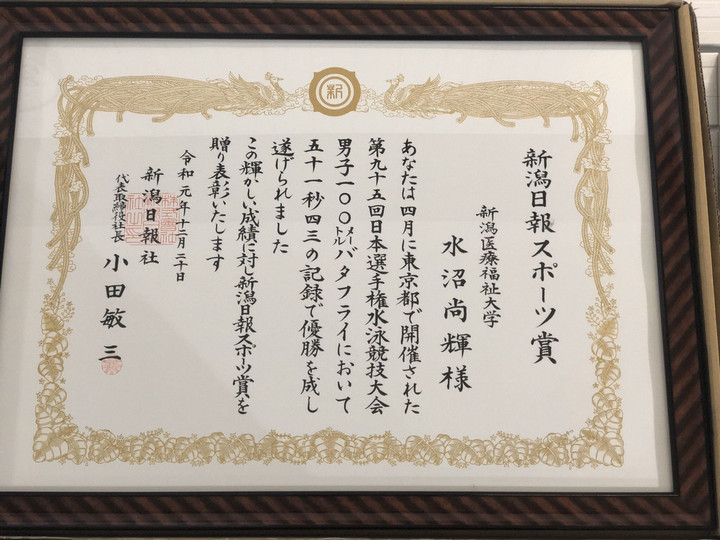 新
新潟日報スポーツ賞
新潟医療福祉大学
水沼尚輝様
あなたは四月に東京都で開催された
第九十五回日本選手権水泳競技大会
男子一〇〇メートルバタフライにおいて
五十一秒四三の記録で優勝を成し
遂げられました
この輝かしい成績に対し新潟日報スポーツ賞を
贈り表彰いたします
令和元年十二月二十日
新潟日報社
代表取締役社長
小田敏三